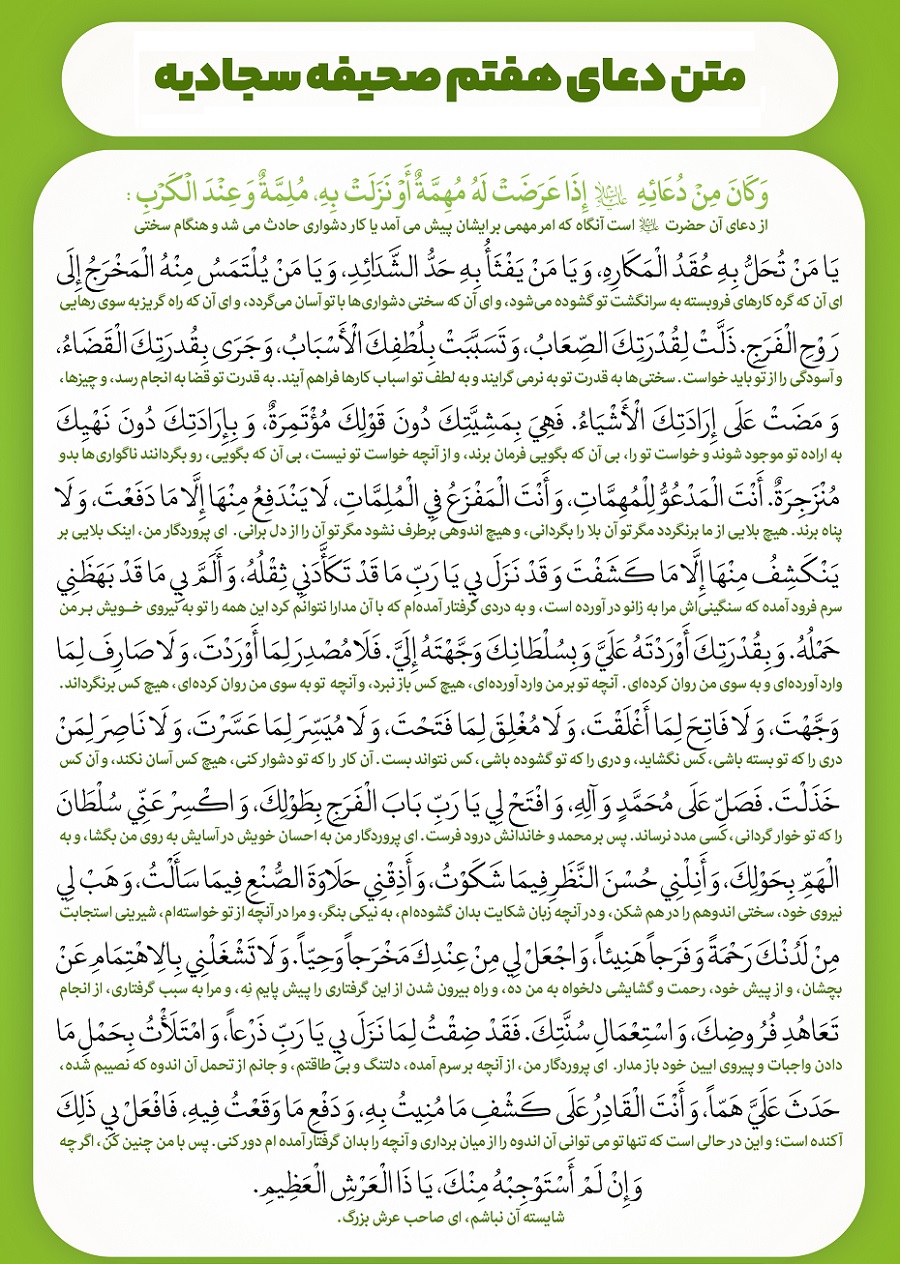 متن دعای هفتم صحیفه سجادیه
وَكَانَ مِنْ دُعَائِهِ عليه‌السلام إِذَا عَرَضَتْ لَهُ مُهِمَّةٌ أَوْ نَزَلَتْ بِهِ، مُلِمَّةٌ وَ عِنْدَ الْكَرْبِ :
از دعای آن حضرت عليه‌السلام است آنگاه که امر مهمی بر ایشان پیش می آمد یا کار دشواری حادث می شد و هنگام سختی
يَا مَنْ تُحَلُّ بِهِ عُقَدُ الْمَكَارِهِ، وَ يَا مَنْ يَفْثَأُ بِهِ حَدُّ الشَّدَائِدِ، وَ يَا مَنْ يُلْتَمَسُ مِنْهُ الْمَخْرَجُ إِلَى
ای آن که گره کارهای فروبسته به سرانگشت تو گشوده می‌شود، و ای آن که سختی دشواری‌ها با تو آسان می‌گردد، و ای آن که راه گریز به سوی رهایی
رَوْحِ الْفَرَجِ. ذَلَّتْ لِقُدْرَتِكَ الصِّعَابُ، وَ تَسَبَّبَتْ بِلُطْفِكَ الْأَسْبَابُ، وَ جَرَى بِقُدرَتِكَ الْقَضَاءُ،
و آسودگی را از تو باید خواست. سختی‌ها به قدرت تو به نرمی گرایند و به لطف تو اسباب کارها فراهم آیند. به قدرت تو قضا به انجام رسد، و چیزها،
وَ مَضَتْ عَلَى إِرَادَتِكَ الْأَشْيَاءُ. فَهِيَ بِمَشِيَّتِكَ دُونَ قَوْلِكَ مُؤْتَمِرَةٌ، وَ بِإِرَادَتِكَ دُونَ نَهْيِكَ
به اراده تو موجود شوند و خواست تو را، بی آن که بگویی فرمان برند، و از آنچه خواست تو نیست، بی آن که بگویی، رو بگردانند ناگواری‌ها بدو
مُنْزَجِرَةٌ. أَنْتَ الْمَدْعُوُّ لِلْمُهِمَّاتِ، وَ أَنْتَ الْمَفْزَعُ فِي الْمُلِمَّاتِ، لَا يَنْدَفِعُ مِنْهَا إِلَّا مَا دَفَعْتَ، وَ لَا
پناه برند. هیچ بلایی از ما برنگردد مگر تو آن بلا را بگردانی، و هیچ اندوهی برطرف نشود مگر تو آن را از دل برانی. ای پروردگار من، اینک بلایی بر
يَنْكَشِفُ مِنْهَا إِلَّا مَا كَشَفْتَ وَ قَدْ نَزَلَ بِي يَا رَبِّ مَا قَدْ تَكَأَّدَنِي ثِقْلُهُ، وَ أَلَمَّ بِي مَا قَدْ بَهَظَنِي
سرم فرود آمده که سنگینی‌اش مرا به زانو در آورده است، و به دردی گرفتار آمده‌ام که با آن مدارا نتوانم کرد این همه را تو به نیروی خویش بر من
حَمْلُهُ. وَ بِقُدْرَتِكَ أَوْرَدْتَهُ عَلَيَّ وَ بِسُلْطَانِكَ وَجَّهْتَهُ إِلَيَّ. فَلَا مُصْدِرَ لِمَا أَوْرَدْتَ، وَ لَا صَارِفَ لِمَا
وارد آورده‌ای و به سوی من روان کرده‌ای. آنچه تو بر من وارد آورده‌ای، هیچ کس باز نبرد، و آنچه تو به سوی من روان کرده‌ای، هیچ کس برنگرداند.
وَجَّهْتَ، وَ لَا فَاتِحَ لِمَا أَغْلَقْتَ، وَ لَا مُغْلِقَ لِمَا فَتَحْتَ، وَ لَا مُيَسِّرَ لِمَا عَسَّرْتَ، وَ لَا نَاصِرَ لِمَنْ
دری را که تو بسته باشی، کس نگشاید، و دری را که تو گشوده باشی، کس نتواند بست. آن کار را که تو دشوار کنی، هیچ کس آسان نکند، و آن کس
خَذَلْتَ. فَصَلِّ عَلَى مُحَمَّدٍ وَ آلِهِ، وَ افْتَحْ لِي يَا رَبِّ بَابَ الْفَرَجِ بِطَوْلِكَ، وَ اكْسِرْ عَنِّي سُلْطَانَ
را که تو خوار گردانی، کسی مدد نرساند. پس بر محمد و خاندانش درود فرست. ای پروردگار من به احسان خویش در آسایش به روی من بگشا، و به
الْهَمِّ بِحَوْلِكَ، وَ أَنِلْنِي حُسْنَ النَّظَرِ فِيمَا شَكَوْتُ، وَ أَذِقْنِي حَلَاوَةَ الصُّنْعِ فِيمَا سَأَلْتُ، وَ هَبْ لِي
نیروی خود، سختی اندوهم را در هم شکن، و در آنچه زبان شکایت بدان گشوده‌ام، به نیکی بنگر، و مرا در آنچه از تو خواسته‌ام، شیرینی استجابت
مِنْ لَدُنْكَ رَحْمَةً وَ فَرَجاً هَنِيئاً، وَ اجْعَلْ لِي مِنْ عِنْدِكَ مَخْرَجاً وَحِيّاً. وَ لَا تَشْغَلْنِي بِالِاهْتِمَامِ عَنْ
بچشان، و از پیش خود، رحمت و گشایشی دلخواه به من ده، و راه بیرون شدن از این گرفتاری را پیش پایم نِه، و مرا به سبب گرفتاری، از انجام
تَعَاهُدِ فُرُوضِكَ، وَ اسْتِعْمَالِ سُنَّتِكَ. فَقَدْ ضِقْتُ لِمَا نَزَلَ بِي يَا رَبِّ ذَرْعاً، وَ امْتَلَأْتُ بِحَمْلِ مَا
دادن واجبات و پیروی آیین خود باز مدار. ای پروردگار من، از آنچه بر سرم آمده، دلتنگ و بی طاقتم، و جانم از تحمل آن اندوه که نصیبم شده،
حَدَثَ عَلَيَّ هَمّاً، وَ أَنْتَ الْقَادِرُ عَلَى كَشْفِ مَا مُنِيتُ بِهِ، وَ دَفْعِ مَا وَقَعْتُ فِيهِ، فَافْعَلْ بِي ذَلِكَ
آکنده است؛ و این در حالی است که تنها تو می توانی آن اندوه را از میان برداری و آنچه را بدان گرفتار آمده ام دور کنی. پس با من چنین کُن، اگر چه
وَ إِنْ لَمْ أَسْتَوْجِبْهُ مِنْكَ، يَا ذَا الْعَرْشِ الْعَظِيمِ.
شایسته آن نباشم، ای صاحب عرش بزرگ.